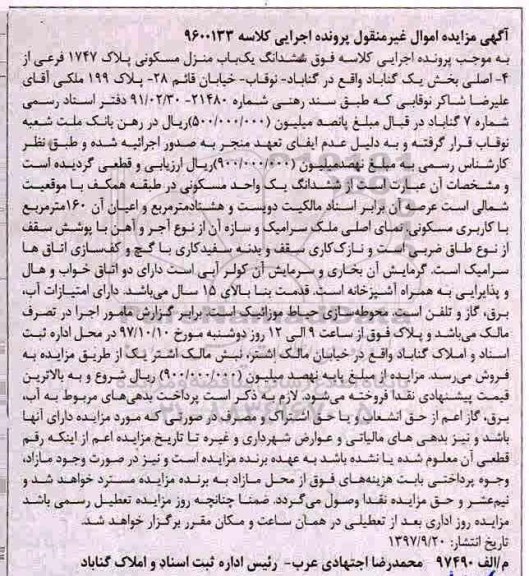 آگهی مزایده اموال غیرمنقول پرونده اجرایی کلاسه ۹۶۰۰۱۳۳
به موجب پرونده اجرایی کلاسه فوق ششدانگ یک‌باب منزل مسکونی پلاک ۱۷۴۷ فرعی از
۴- اصلی بخش یک گناباد واقع در گناباد- نوقاب- خیابان قائم ۲۸- پلاک ۱۹۹ ملکی آقای
علیرضا شاکر نوقابی که طبق سند رهنی شماره ۲۱۴۸۰- ۹۱/۰۲/۳۰ دفتر اسناد رسمی
شماره ۷ گناباد در قبال مبلغ پانصد میلیون (۵۰۰/۰۰۰/۰۰۰)ریال در رهن بانک ملت شعبه
نوقاب قرار گرفته و به دلیل عدم ایفای تعهد منجر به صدور اجرائیه شده و طبق نظر
کارشناس رسمی به مبلغ نهصدمیلیون (۹۰۰/۰۰۰/۰۰۰)ریال ارزیابی و قطعی گردیده است
و مشخصات آن عبارت است از ششدانگ یک واحد مسکونی در طبقه همکف با موقعیت
شمالی است عرصه آن برابر اسناد مالکیت دویست و هشتادمترمربع و اعیان آن ۱۶۰مترمربع
با کاربری مسکونی، نمای اصلی ملک سرامیک و سازه آن از نوع آجر و آهن با پوشش سقف
از نوع طاق ضربی است و نازک‌کاری سقف و بدنه سفیدکاری با گچ و کف‌سازی اتاق ها
سرامیک است. گرمایش آن بخاری و سرمایش آن کولر آبی است دارای دو اتاق خواب و هال
و پذیرایی به همراه آشپزخانه است. قدمت بنا بالای ۱۵ سال می‌باشد. دارای امتیازات آب،
برق، گاز و تلفن است محوطه‌سازی حیاط موزائیک است. برابر گزارش مامور اجرا در تصرف
مالک می‌باشد و پلاک فوق از ساعت ۹ الی ۱۲ روز دوشنبه مورخ ۹۷/۱۰/۱۰ در محل اداره ثبت
اسناد و املاک گناباد واقع در خیابان مالک اشتر، نبش مالک اشتر یک از طریق مزایده به
فروش می‌رسد. مزایده از مبلغ پایه نهصد میلیون (۹۰۰/۰۰۰/۰۰۰) ریال شروع و به بالاترین
قیمت پیشنهادی نقدا فروخته می‌شود. لازم به ذکر است پرداخت بدهی‌های مربوط به آب،
برق، گاز اعم از حق انشعاب و یا حق اشتراک و مصرف در صورتی که مورد مزایده دارای آنها
باشد و نیز بدهی های مالیاتی و عوارض شهرداری و غیره تا تاریخ مزایده اعم از اینکه رقم
قطعی آن معلوم شده یا نشده باشد به عهده برنده مزایده است و نیز در صورت وجود مازاد،
وجوه پرداختی بابت هزینه‌های فوق از محل مازاد به برنده مزایده مسترد خواهد شد و
نیم‌عشر و حق مزایده نقدا وصول می‌گردد. ضمنا چنانچه روز مزایده تعطیل رسمی باشد
مزایده روز اداری بعد از تعطیلی در همان ساعت و مکان مقرر برگزار خواهد شد.
تاریخ انتشار: ۱۳۹۷/۹/۲۰
م/الف ۹۷۴۹۰ محمدرضا اجتهادی عرب- رئیس اداره ثبت اسناد و املاک گناباد